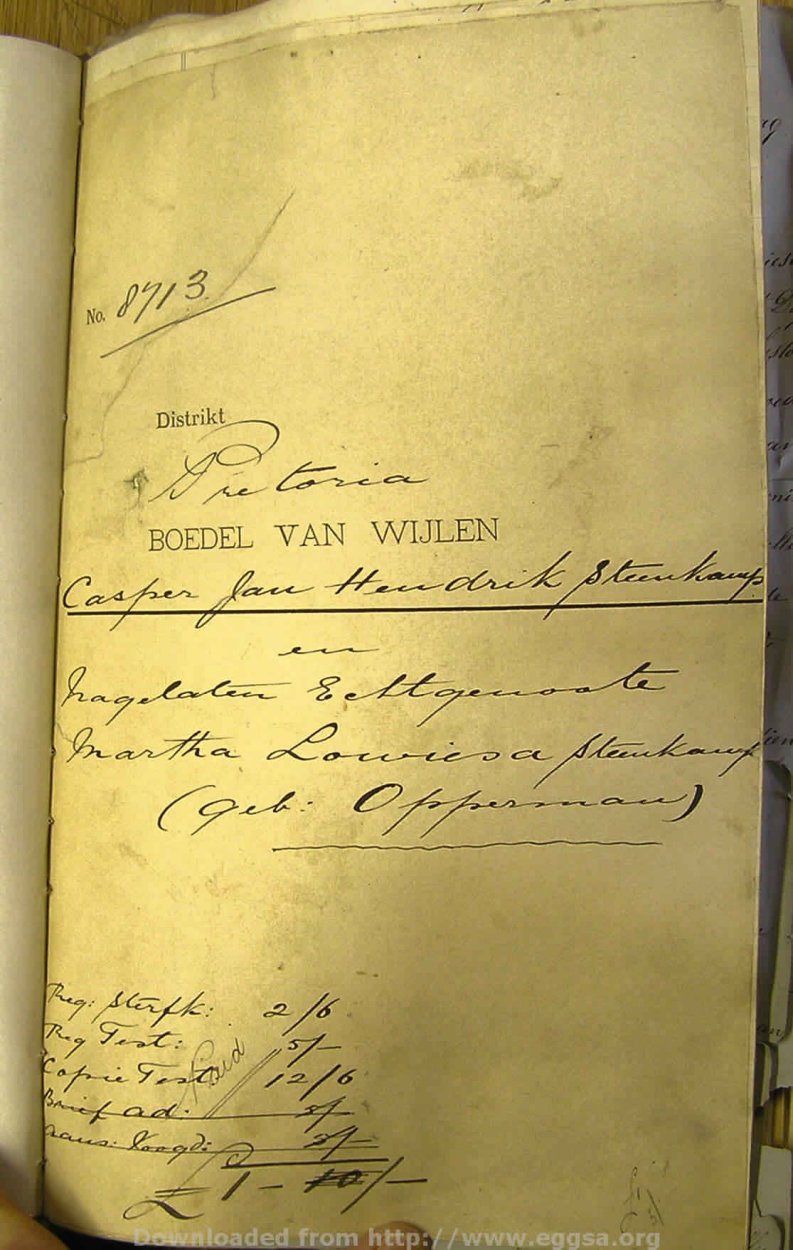 No. 8713
Distrikt
Pretoria
BOEDEL VAN WIJLEN
Casper Jan Hendrik Steenkamp
en
nagelaten Echtgenoote
Martha Lowiesa Steenkamp
(geb: Opperman)
Reg: Sterfk: 2/6
Reg Test: 5/-
Copie Test 12/6
Paid
Brief ad:
Voogd:
£ 1 - 10/-
Downloaded from http://www.eggsa.org